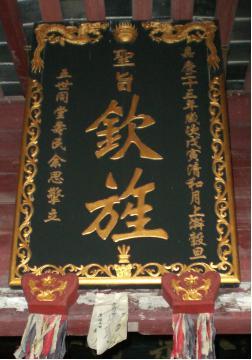 嘉慶二十三年歲戊寅清和月上澣穀旦
聖旨
欽旌
五世同堂壽民余思立